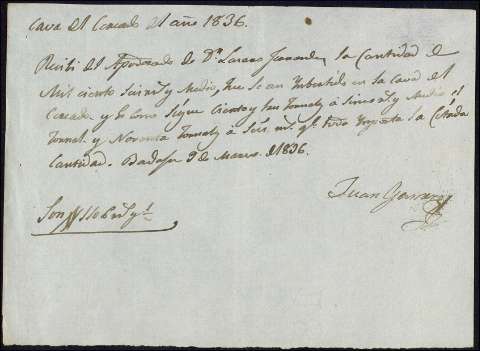 Cava del Cercado del año 1836.
Recibi del Apoderado de Dn. Lazaro Fernandez la Cantidad de
Mil ciento seis rs. y Medio, que se an Imbertido en la Cava del
Cercado y lo Como sigue Ciento y tres Jornals. á Cinco rs. y Medio el
Jornal. y Noventa Jornals. á Seis rs. qe. todo Importa la Citada
Cantidad. Badajoz 9 de Marzo de 1836.
Juan
Son